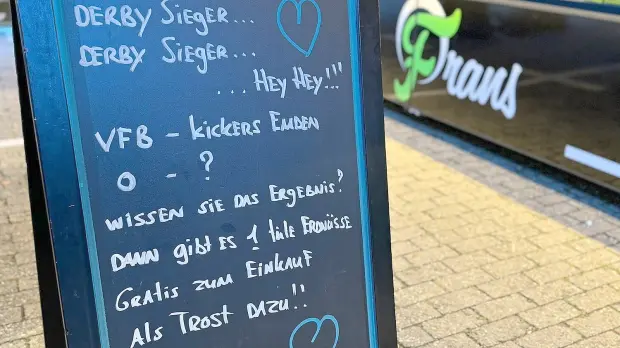 DERBY SIEGER...
DERBY SIEGER...
... HEY HEY!!!
VFB - KICKERS EMDEN
0 - ?
WISSEN SIE DAS ERGEBNIS?
DANN gibt ES 1 tüte ERDNÜSSE
GRATIS ZUM EINKAUF
ALS TROST DAZU!!
Frans